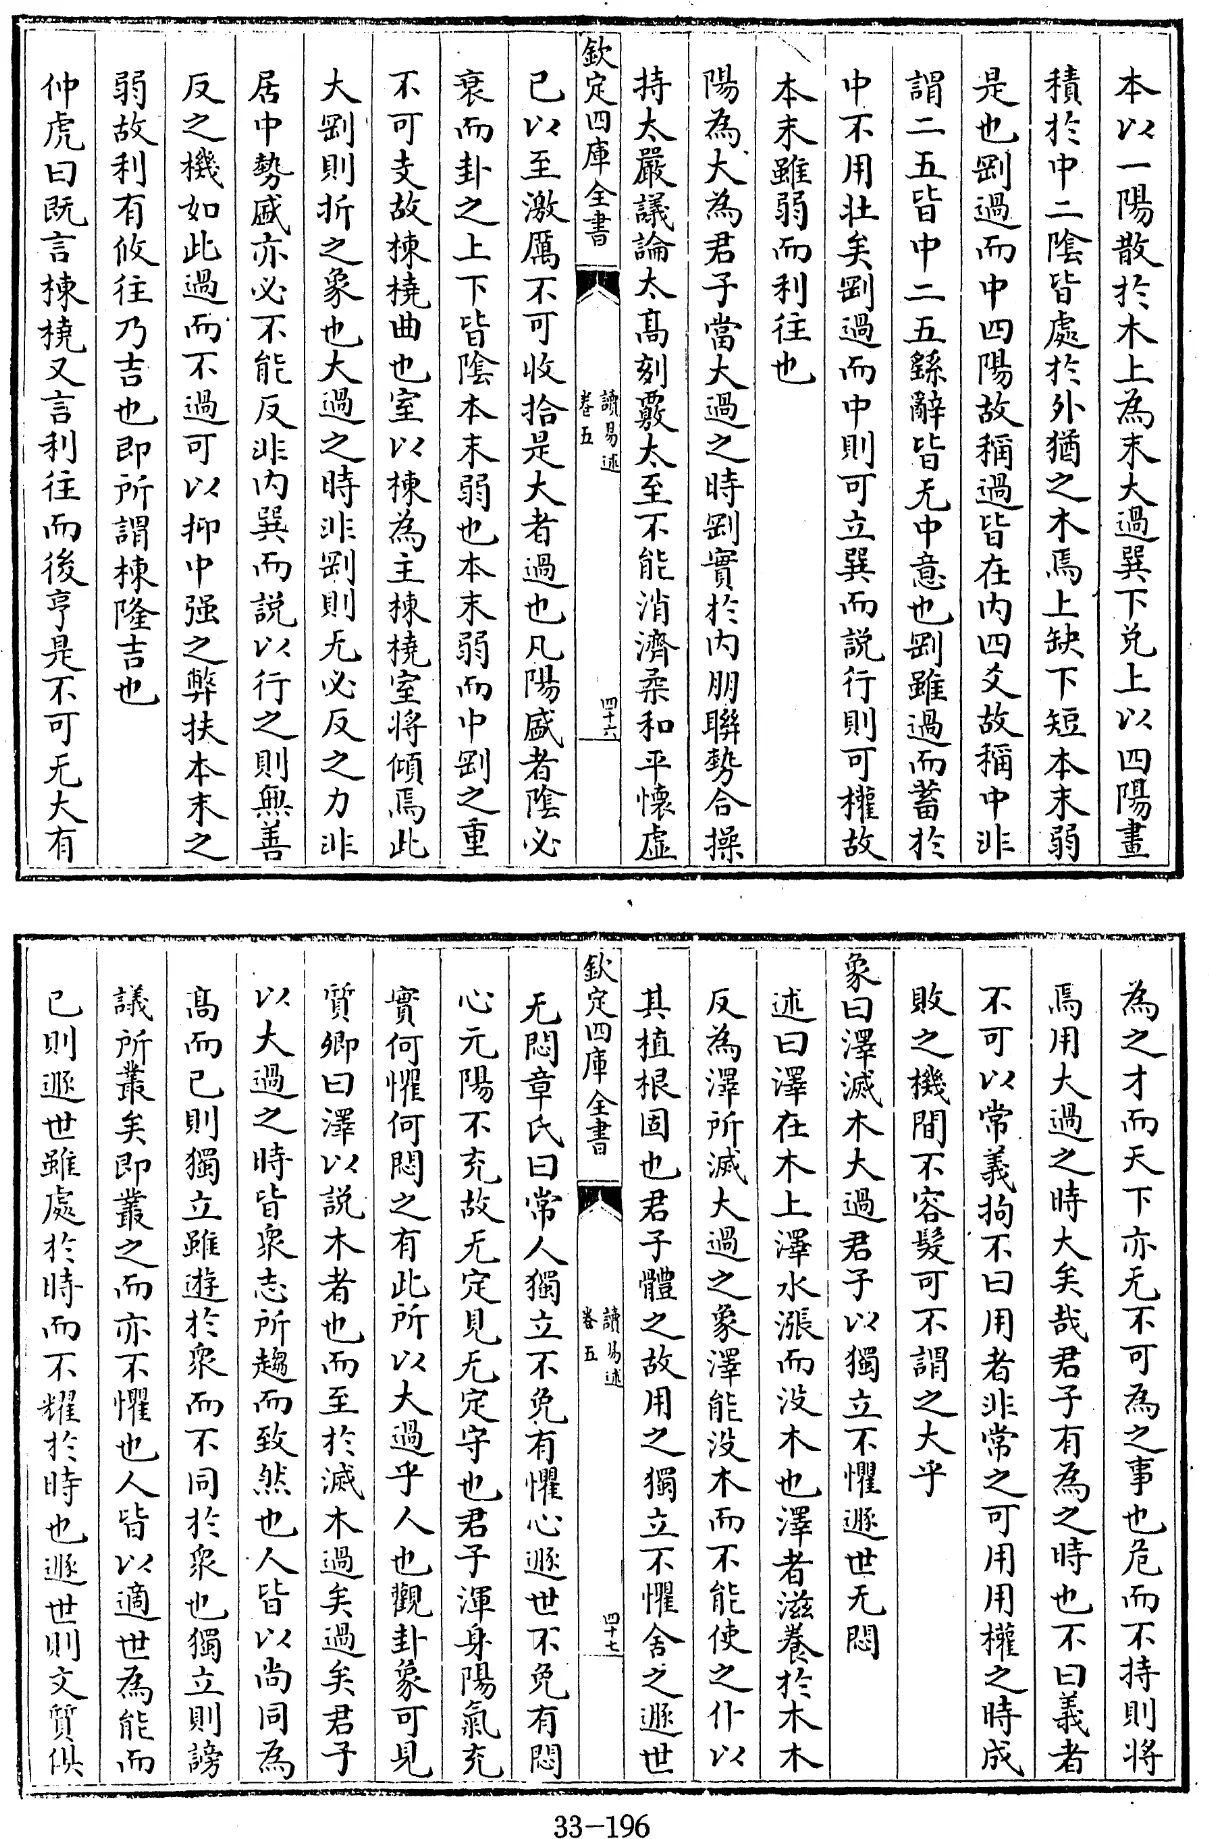 本以一陽散於木上為末大過巽下兌上以四陽畫
積於中二陰皆處於外猶之木焉上缺下短本末弱
是也剛過而中四陽故稱過皆在内四爻故稱中非
謂二五皆中二五繇辭皆无中意也剛雖過而蓄於
中不用壯矣剛過而中則可立巽而説行則可權故
本末雖弱而利往也
陽為大為君子當大過之時剛實於内朋聯勢合操
持太嚴議論太髙刻覈太至不能消濟柔和平懐虚
欽定四庫全書
讀易述
卷五
四十六
已以至激厲不可收拾是大者過也凡陽盛者陰必
衰而卦之上下皆陰本末弱也本末弱而中剛之重
不可支故棟橈曲也室以棟為主棟橈室將傾焉此
大剛則折之象也大過之時非剛則无必反之力非
居中勢盛亦必不能反非内巽而説以行之則無善
反之機如此過而不過可以抑中强之弊扶本末之
弱故利有攸往乃吉也即所謂棟隆吉也
仲虎曰既言棟橈又言利往而後亨是不可无大有
為之才而天下亦无不可為之事也危而不持則將
焉用大過之時大矣哉君子有為之時也不曰義者
不可以常義拘不曰用者非常之可用用權之時成
敗之機間不容髮可不謂之大乎
象曰澤滅木大過君子以獨立不懼遯世无悶
述曰澤在木上澤水漲而沒木也澤者滋養於木木
反為澤所滅大過之象澤能沒木而不能使之仆以
其植根固也君子體之故用之獨立不懼舍之遯世
欽定四庫全書
讀易述
卷五
四十七
无悶章氏曰常人獨立不免有懼心遯世不免有悶
心元陽不充故无定見无定守也君子渾身陽氣充
實何懼何悶之有此所以大過乎人也觀卦象可見
質卿曰澤以説木者也而至於滅木過矣過矣君子
以大過之時皆衆志所趨而致然也人皆以尚同為
髙而已則獨立雖遊於衆而不同於衆也獨立則謗
議所叢矣即叢之而亦不懼也人皆以適世為能而
已則遯世雖處於時而不耀於時也遯世則文質俱
33-196